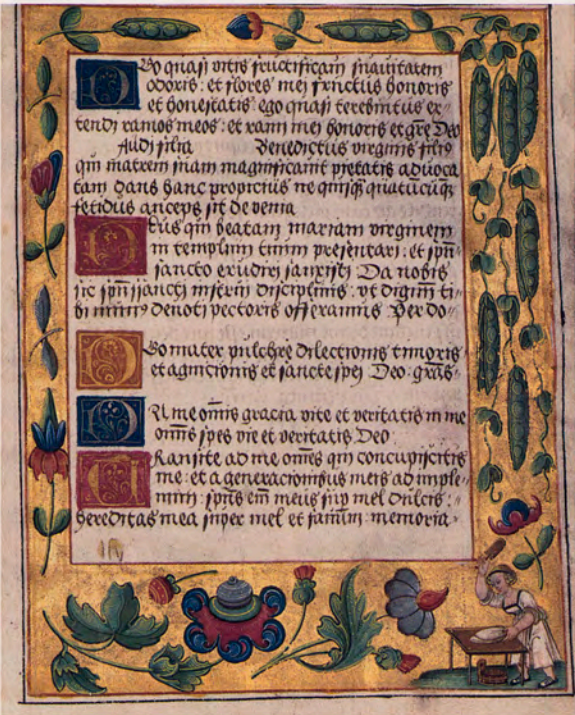 Ego quasi vitis fructificavi suavitatem
odoris: et flores mei fructus honoris
et honestatis ego quasi terebintus ex-
tendi ramos meos: et rami mei honoris et gr̄e Deo
Audi filia Benedictus virginis filius
qui matrem suam magnificavit pietatis advoca
tam dans hanc propicius ne quisq̄ quātūcūq̄
fetidus anceps sit de venia
Deus qui beatam mariam virginem
in templum tuum presentari: et sp̄u-
sancto erudiri Da nobis
sic sp̄u sancti disciplinis: ut
devoti pectoris offeramus Per do-
Ego mater pulchre dilectionis et timoris
et agnicionis et sancte spei Deo gr̄as
In me om̄is gracia vite et veritatis in me
om̄is spes vie et veritatis Deo
Transite ad me om̄es qui concupiscitis
me: et a generacionibus meis adimple-
mini: sp̄us em̄ meus sup mel dulcis:
hereditas mea super mel et favum: memoria